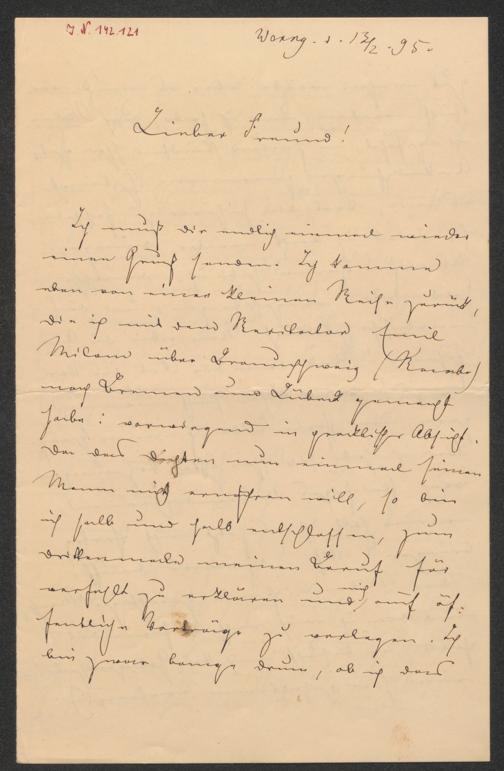 J. N. 142.121
Wernig. d. 13/2. 95.
Lieber Freund!
Ich muß dir endlich einmal wieder
einen Gruß senden. Ich komme
eben von einer kleinen Reise zurück,
die ich mit dem Recitator Emil
Milan über Braunschweig (Raabe)
nach Bremen und Lübeck gemacht
habe: vorwiegend in praktischer Absicht.
Da das dichten nun einmal seinen
Mann nicht ernähren will, so bin
ich halb und halb entschlossen, zum
drittenmale meinen Beruf für
verfehlt zu erklären und mich auf öf-
fentliche Vorträge zu verlegen. Ich
bin zwar bange drum, ob ich das